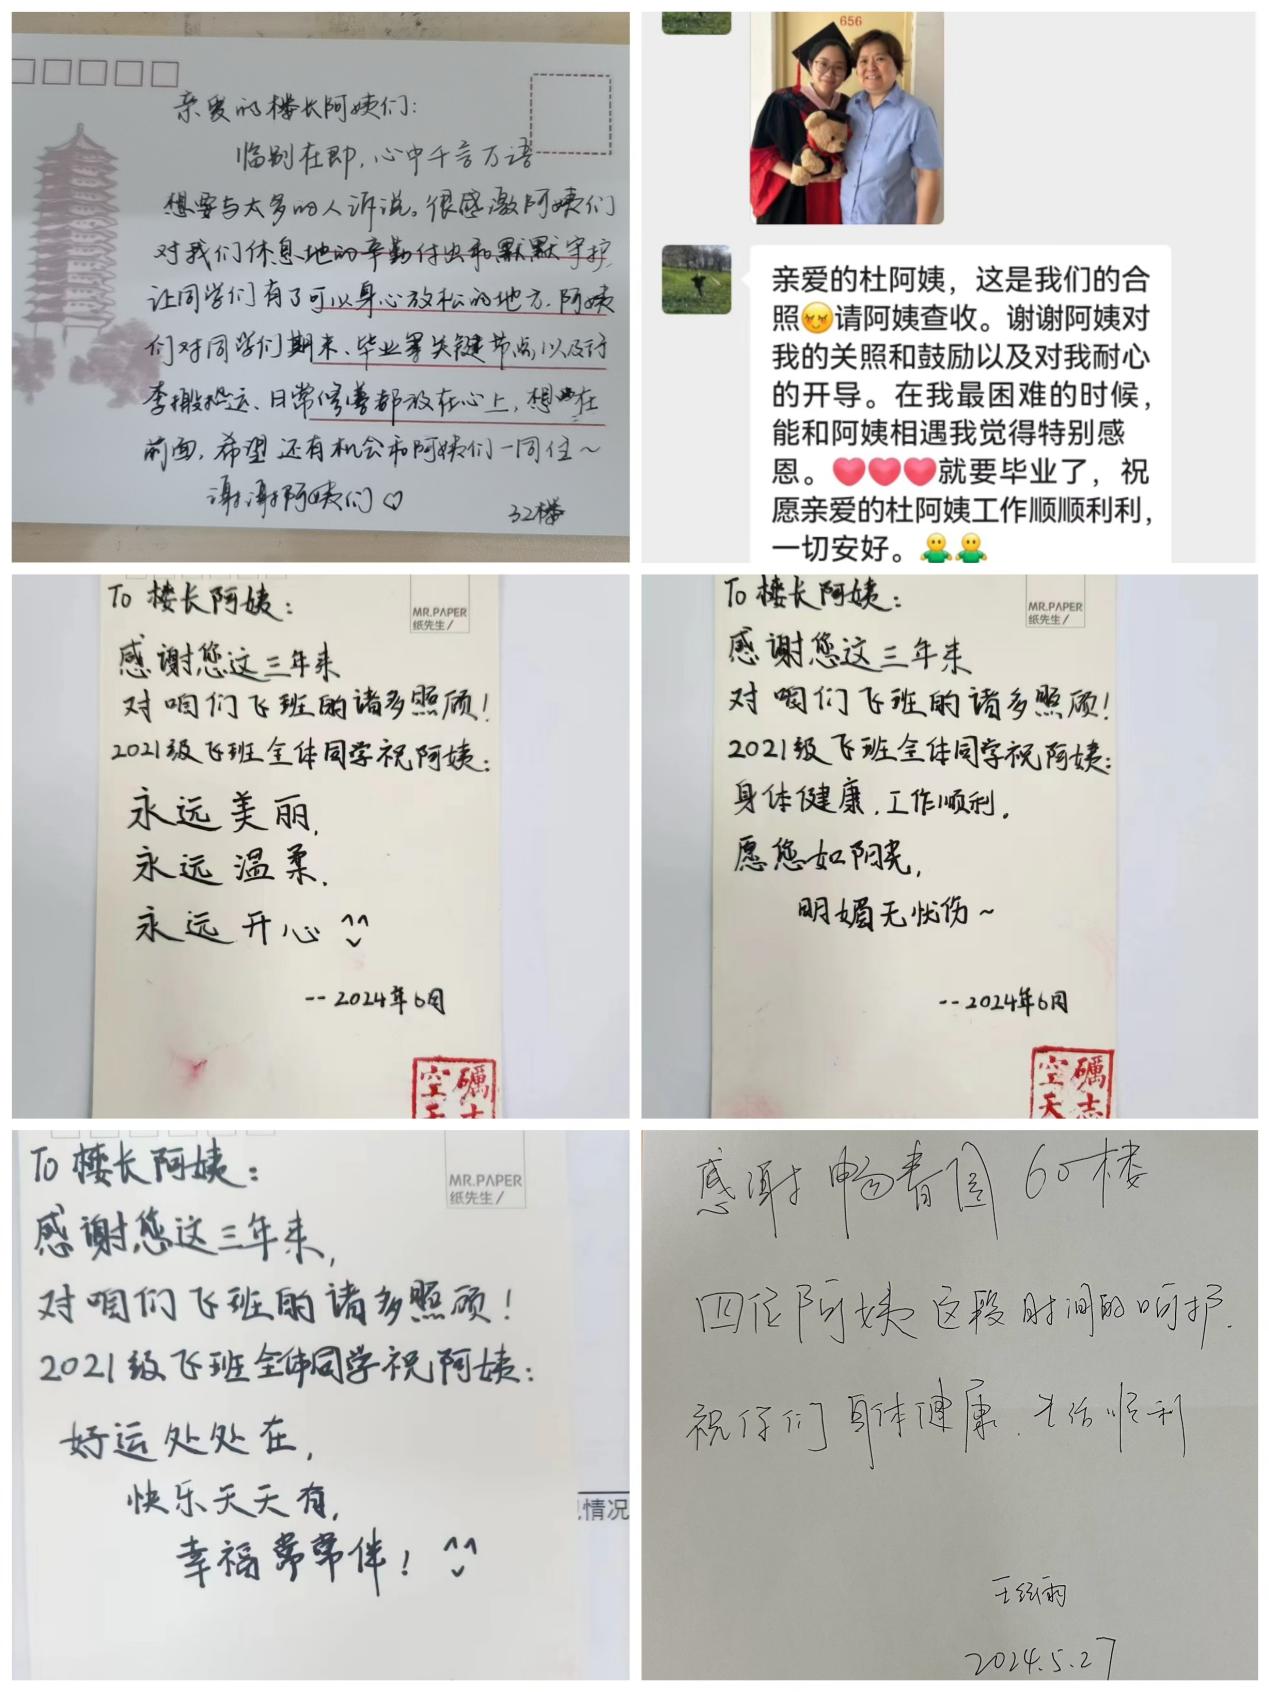 亲爱的楼长阿姨们:
临别在即,心中千言万语
想要与太多的人诉说。很感激阿姨们
对我们休息地的辛勤付出和默默守护,
让同学们有了可以身心放松的地方.阿姨
们对同学们期末、毕业等关键节点以及行
李搬运、日常修善都放在心上,想在
前面,希望还有机会和阿姨们一同住~
谢谢阿姨们♡
32楼
656
亲爱的杜阿姨，这是我们的合
照😚请阿姨查收。谢谢阿姨对
我的关照和鼓励以及对我耐心
的开导。在我最困难的时候，
能和阿姨相遇我觉得特别感
恩。❤❤❤就要毕业了，祝
愿亲爱的杜阿姨工作顺顺利利，
一切安好。
To 楼长阿姨:
MR.PAPER
纸先生/
感谢您这三年来
对咱们飞班的诸多照顾!
2021级飞班全体同学祝阿姨:
永远美丽,
永远温柔,
永远开心 ^^
--2024年6月
砺志
空天
To 楼长阿姨:
MR.PAPER
纸先生/
感谢您这三年来
对咱们飞班的诸多照顾!
2021级飞班全体同学祝阿姨:
身体健康,工作顺利。
愿您如阳光,
明媚无忧伤~
--2024年6月
砺志
空天
To 楼长阿姨:
MR.PAPER
纸先生/
感谢您这三年来,
对咱们飞班的诸多照顾!
2021级飞班全体同学祝阿姨:
好运处处在,
快乐天天有,
幸福常常伴! ^^
情况
感谢畅春园60楼
四位阿姨这段时间的呵护.
祝你们身体健康.生活顺利
2024.5.27